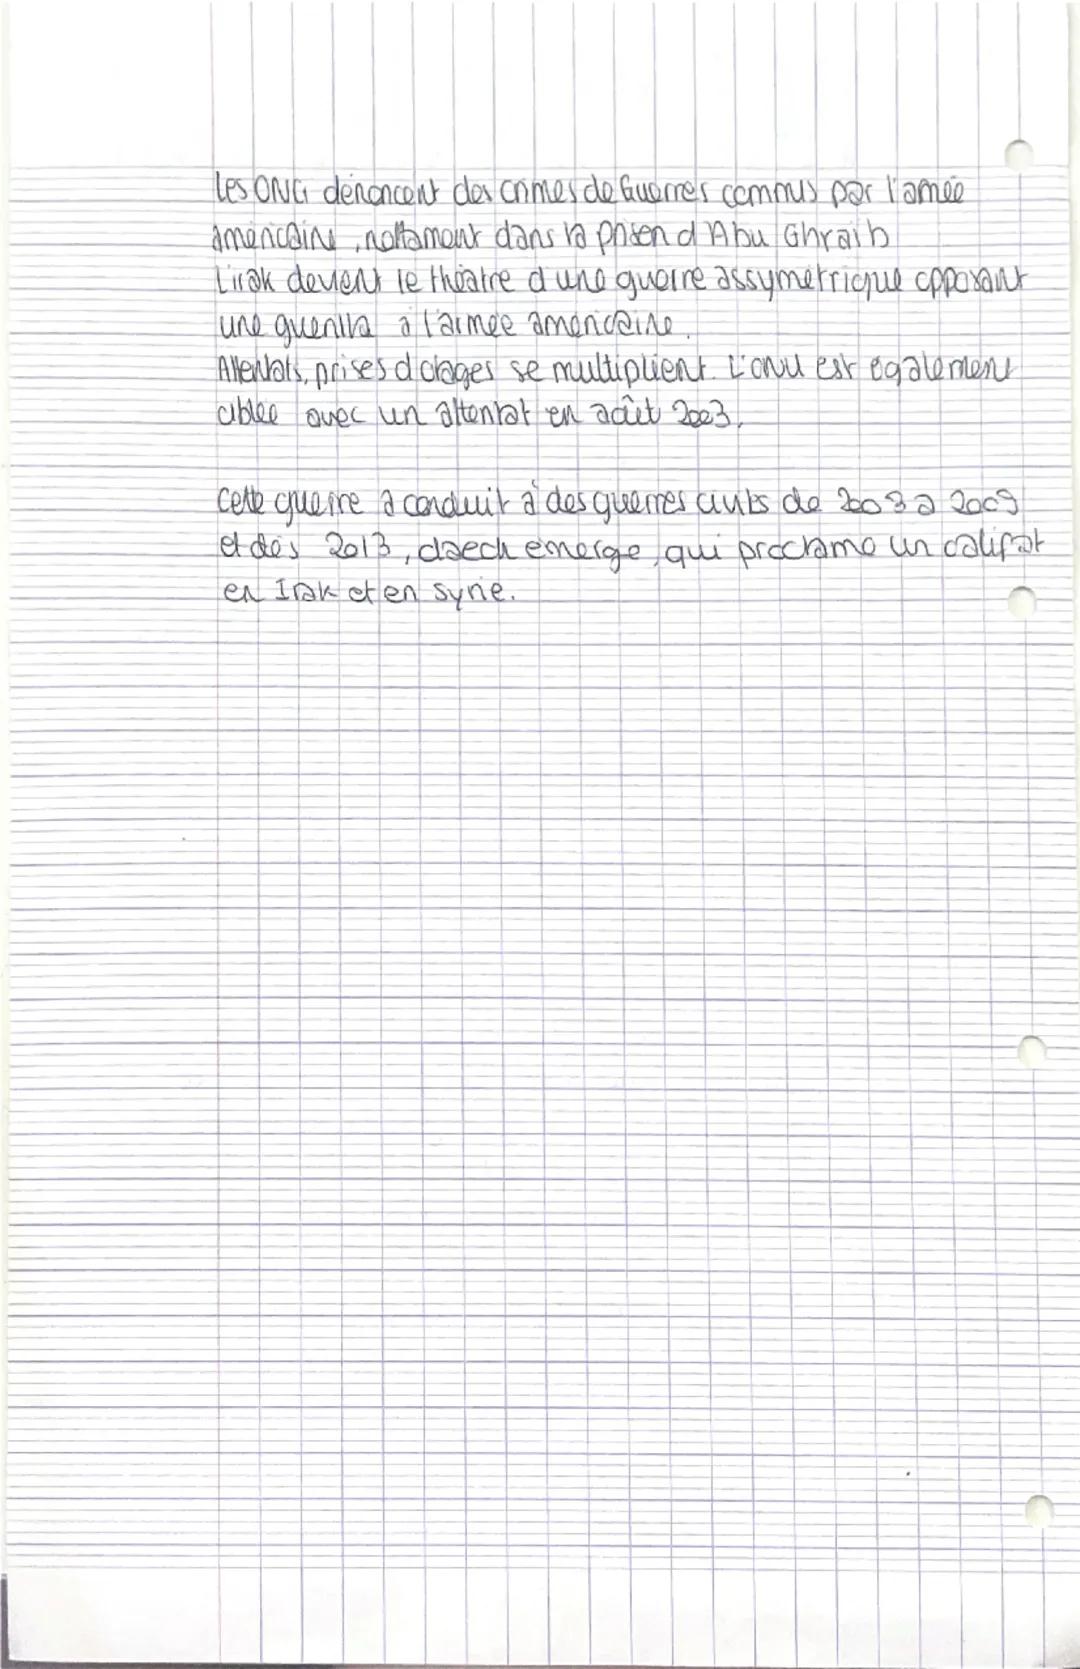 Les ONG dénoncent des crimes de Guerres commus par l'amée
américaine, nottament dans la prison d'Abu Ghraib
L'irak devient le théâtre d'une guerre assymétrique opposant
une guerilla à l'armée américaine.
Attentats, prises d'otages se multiplient. L'onu est également
ciblée avec un attentat en août 2003.
Cette guerre a conduit à des guerres civils de 2003 à 2009
et dès 2013, daech émerge, qui proclame un califat
en Irak et en syrie.